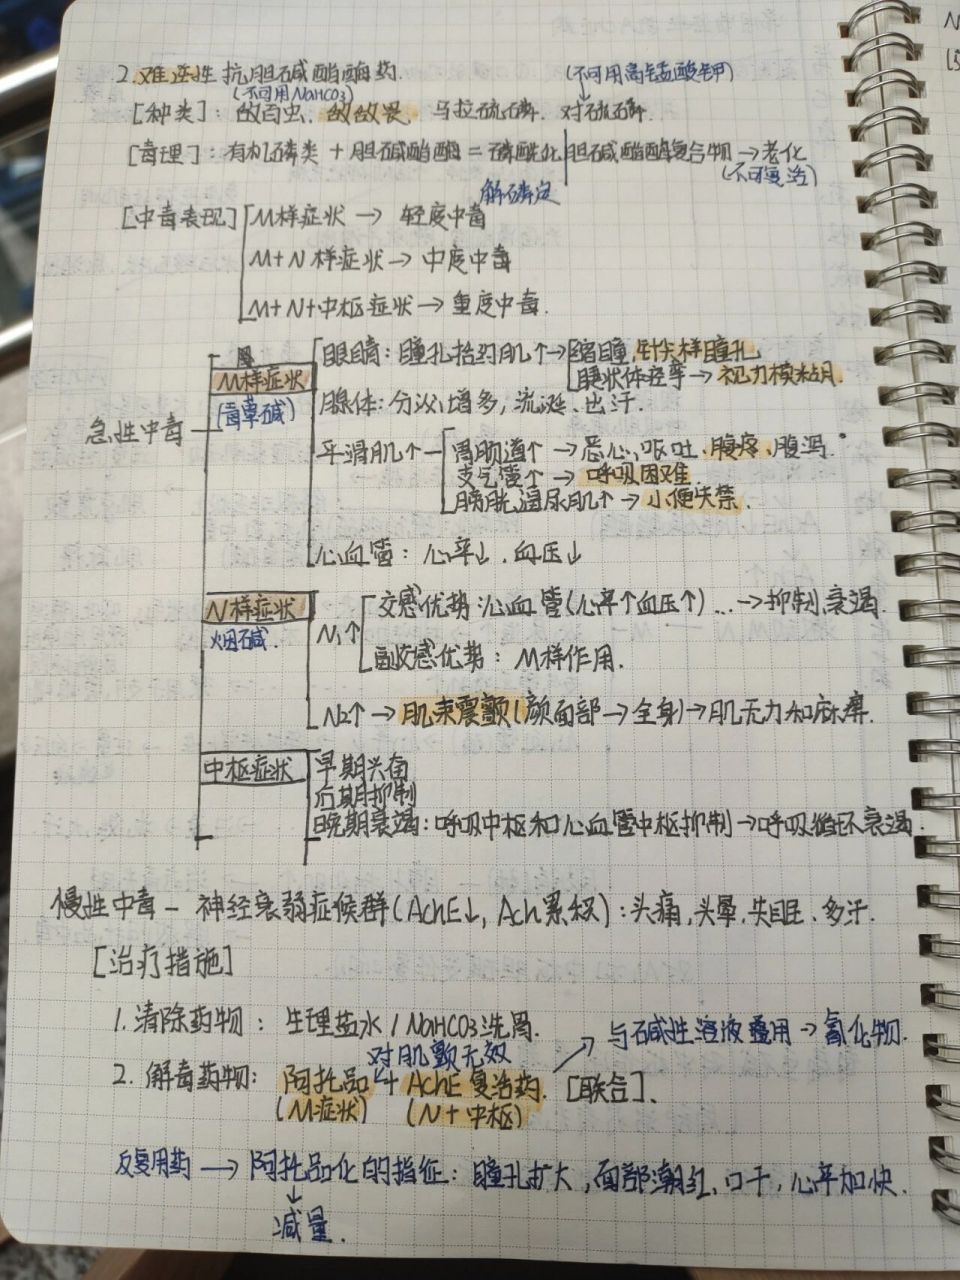 2. 难逆性 抗胆碱酯酶药.
(不可用NaHCO3) (不可用高锰酸钾)
[种类]: 敌百虫、敌敌畏、马拉硫磷. 对硫磷.
[毒理]: 有机磷类 + 胆碱酯酶 = 磷酰化 胆碱酯酶复合物 → 老化
(不可复活)
解磷定
[中毒表现] M样症状 → 轻度中毒
M+N 样症状 → 中度中毒
M+N+中枢症状 → 重度中毒.
急性中毒
M样症状
(毒蕈碱)
眼睛: 瞳孔括约肌↑ → 缩瞳, 针尖样瞳孔
睫状体痉挛 → 视力模糊.
腺体: 分泌增多, 流涎、出汗.
平滑肌↑ 胃肠道↑ → 恶心、呕吐、腹疼、腹泻.
支气管↑ → 呼吸困难
膀胱逼尿肌↑ → 小便失禁.
心血管: 心率↓. 血压↓
N样症状
烟碱.
N1↑ 交感优势: 心血管(心率↑血压↑) ... → 抑制、衰竭.
副交感优势: M样作用.
N2↑ → 肌束震颤(颜面部 → 全身) → 肌无力和麻痹.
中枢症状 早期兴奋
后期抑制
晚期衰竭: 呼吸中枢和心血管中枢抑制 → 呼吸循环衰竭.
慢性中毒 - 神经衰弱症候群(AchE↓, Ach累积): 头痛, 头晕、失眠、多汗.
[治疗措施]
1. 清除药物: 生理盐水 / NaHCO3洗胃.
对肌颤无效 与碱性溶液叠用 → 氰化物.
2. 解毒药物: 阿托品 + AchE复活药. [联合]、
(M症状) (N+中枢)
反复用药 → 阿托品化的指征: 瞳孔扩大, 面部潮红、口干, 心率加快.
↓
减量.